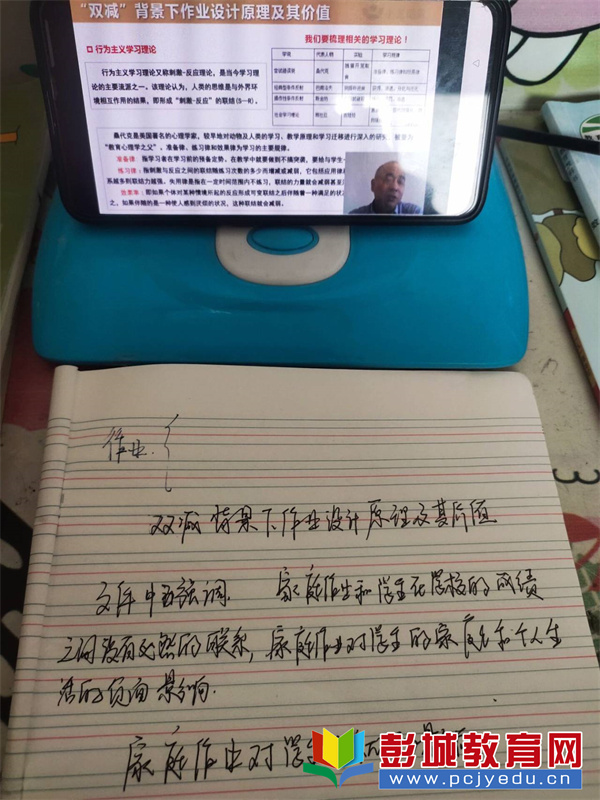 “双减”背景下作业设计原理及其价值
我们要梳理相关的学习理论！
行为主义学习理论
行为主义学习理论又称刺激-反应理论，是当今学习理
论的主要流派之一。该理论认为，人类的思维是与外界环
境相互作用的结果，即形成“刺激-反应”的联结(S—R)。
学派 代表人物
桑代克
桑代克是美国著名的心理学家，较早地对动物及人类的学习、教学原理和学习迁移进行深入的研究
“教育心理学之父”。准备律、练习律和效果律为学习的主要规律。
准备律：指学习者在学习前的预备定势，在教学中就要做到不搞突袭，要给与学生
练习律：指刺激与反应之间的联结随练习次数的多少而增减或减弱，它包括应用律
系越多则联结力越强。失用律是指在一定时间范围内不练习，联结的力量就会减弱甚至
效果律：即如果个体对某种情境所起的反应形成可变联结之后伴随着一种满足的状
之，如果伴随的是一种使人感到厌烦的状况，这种联结就会减弱。
作业.
双减背景下作业设计原理及其价值
文件中再强调. 家庭作业和学生在学校的成绩
之间没有必然的联系，家庭作业对学生的家庭和个人生
活的负面影响.
家庭作业对学
彭城教育网
www.pcjyedu.cn